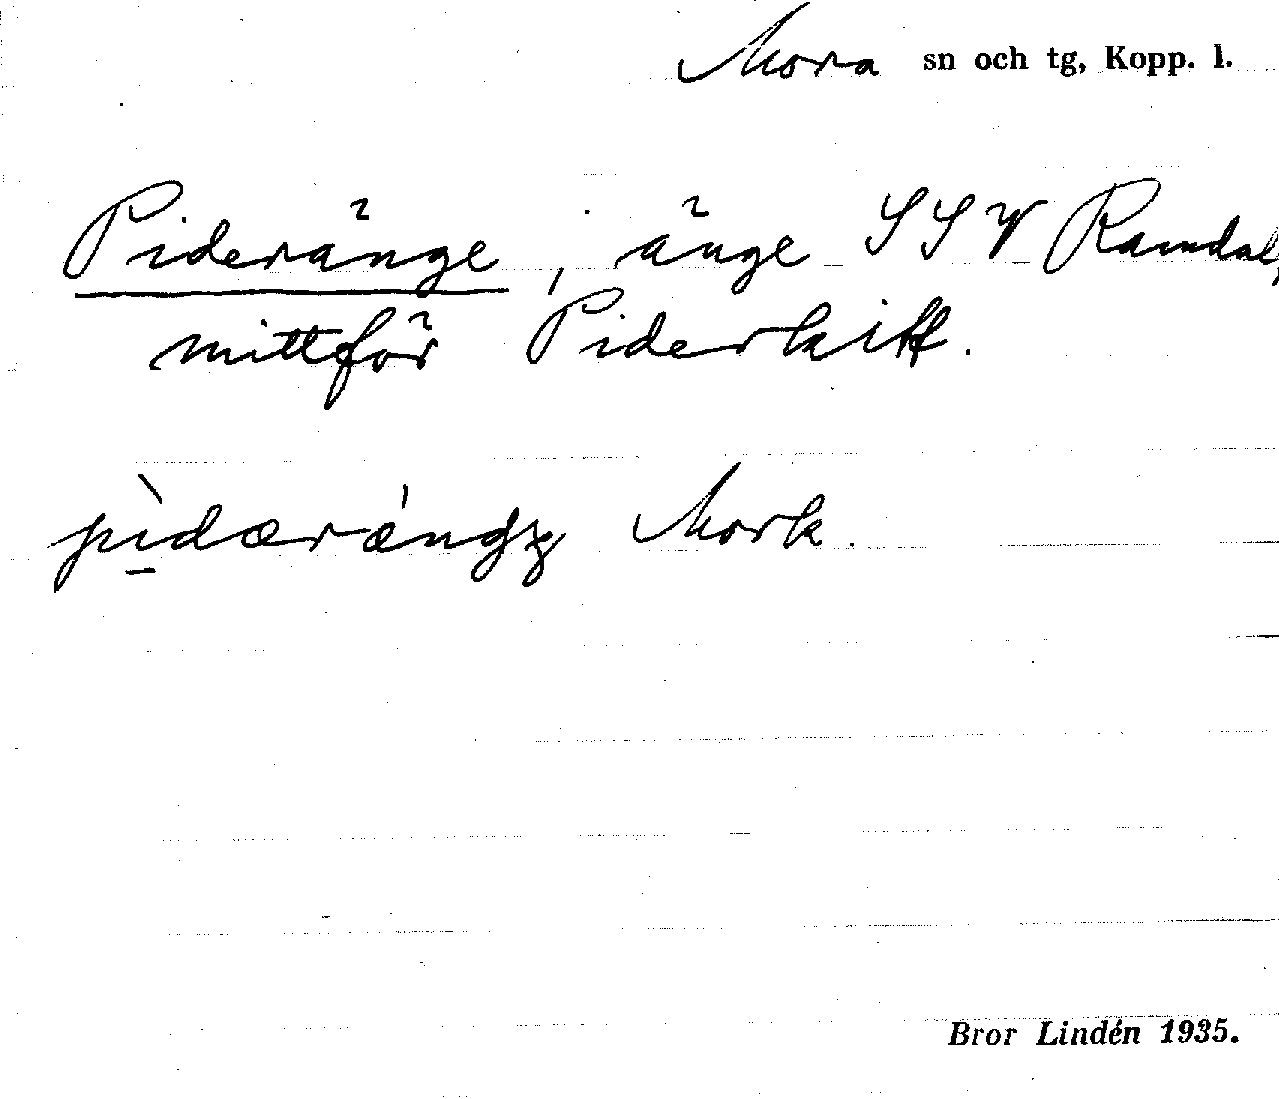 Mora sn och tg, Kopp. l.
Pideränge, änge SSV Ramdal,
mittför Piderkitt.
pìdærǽngɡ Mork.
Bror Lindén 1935.